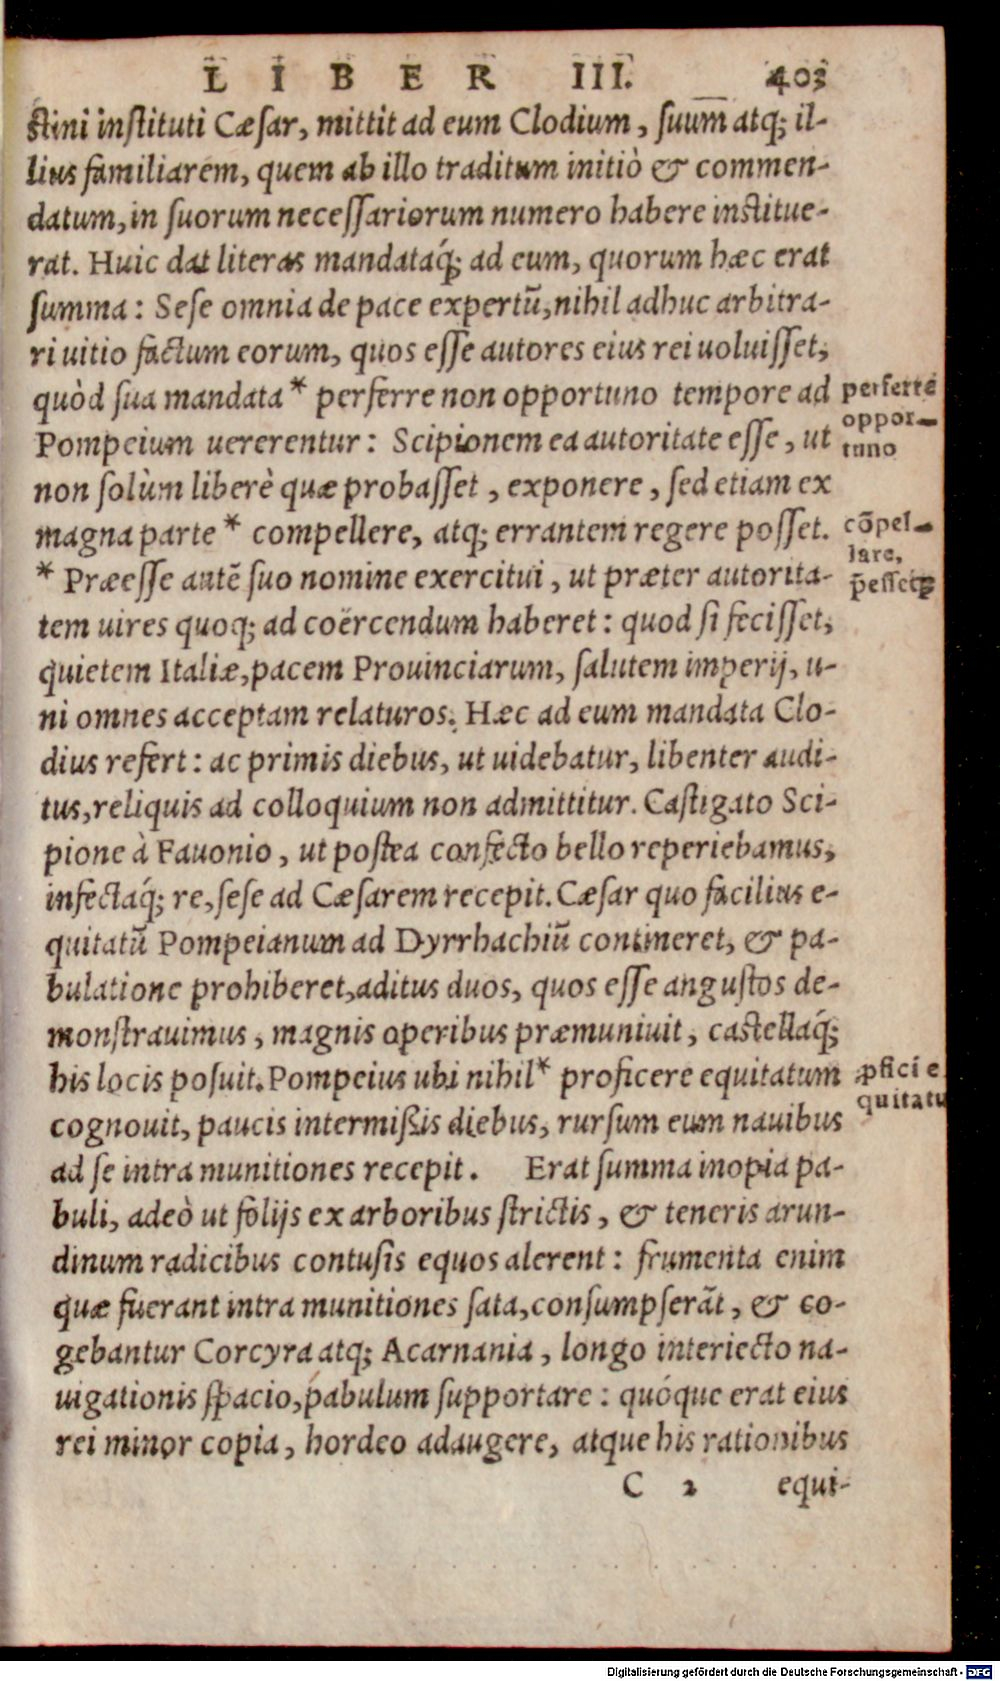 LIBER III. 403
stini instituti Cæsar, mittit ad eum Clodium, suum atq; il-
lius familiarem, quem ab illo traditum initiò & commen-
datum, in suorum necessariorum numero habere institue-
rat. Huic dat literas mandataq́; ad eum, quorum hæc erat
summa: Sese omnia de pace expertū, nihil adhuc arbitra-
ri uitio factum eorum, quos esse autores eius rei uoluisset,
quòd sua mandata * perferre non opportuno tempore ad
perferre
oppor-
tuno
Pompeium uererentur: Scipionem ea autoritate esse, ut
non solùm liberè quæ probasset, exponere, sed etiam ex
magna parte * compellere, atq; errantem regere posset.
cōpel-
lare,
* Præesse autē suo nomine exercitui, ut præter autorita-
tem uires quoq; ad coërcendum haberet: quod si fecisset,
quietem Italiæ, pacem Prouinciarum, salutem imperij, u-
ni omnes acceptam relaturos. Hæc ad eum mandata Clo-
dius refert: ac primis diebus, ut uidebatur, libenter audi-
tus, reliquis ad colloquium non admittitur. Castigato Sci-
pione à Fauonio, ut postea confecto bello reperiebamus,
infectaq́; re, sese ad Cæsarem recepit. Cæsar quo facilius e-
quitatū Pompeianum ad Dyrrhachiū contineret, & pa-
bulatione prohiberet, aditus duos, quos esse angustos de-
monstrauimus, magnis operibus præmuniuit, castellaq́;
his locis posuit. Pompeius ubi nihil * proficere equitatum
ꝓfici e
quitatu
cognouit, paucis intermißis diebus, rursum eum nauibus
ad se intra munitiones recepit. Erat summa inopia pa-
buli, adeò ut folijs ex arboribus strictis, & teneris arun-
dinum radicibus contusis equos alerent: frumenta enim
quæ fuerant intra munitiones sata, consumpserāt, & co-
gebantur Corcyra atq; Acarnania, longo interiecto na-
uigationis spacio, pabulum supportare: quóque erat eius
rei minor copia, hordeo adaugere, atque his rationibus
C 2 equi-
Digitalisierung gefördert durch die Deutsche Forschungsgemeinschaft - DFG